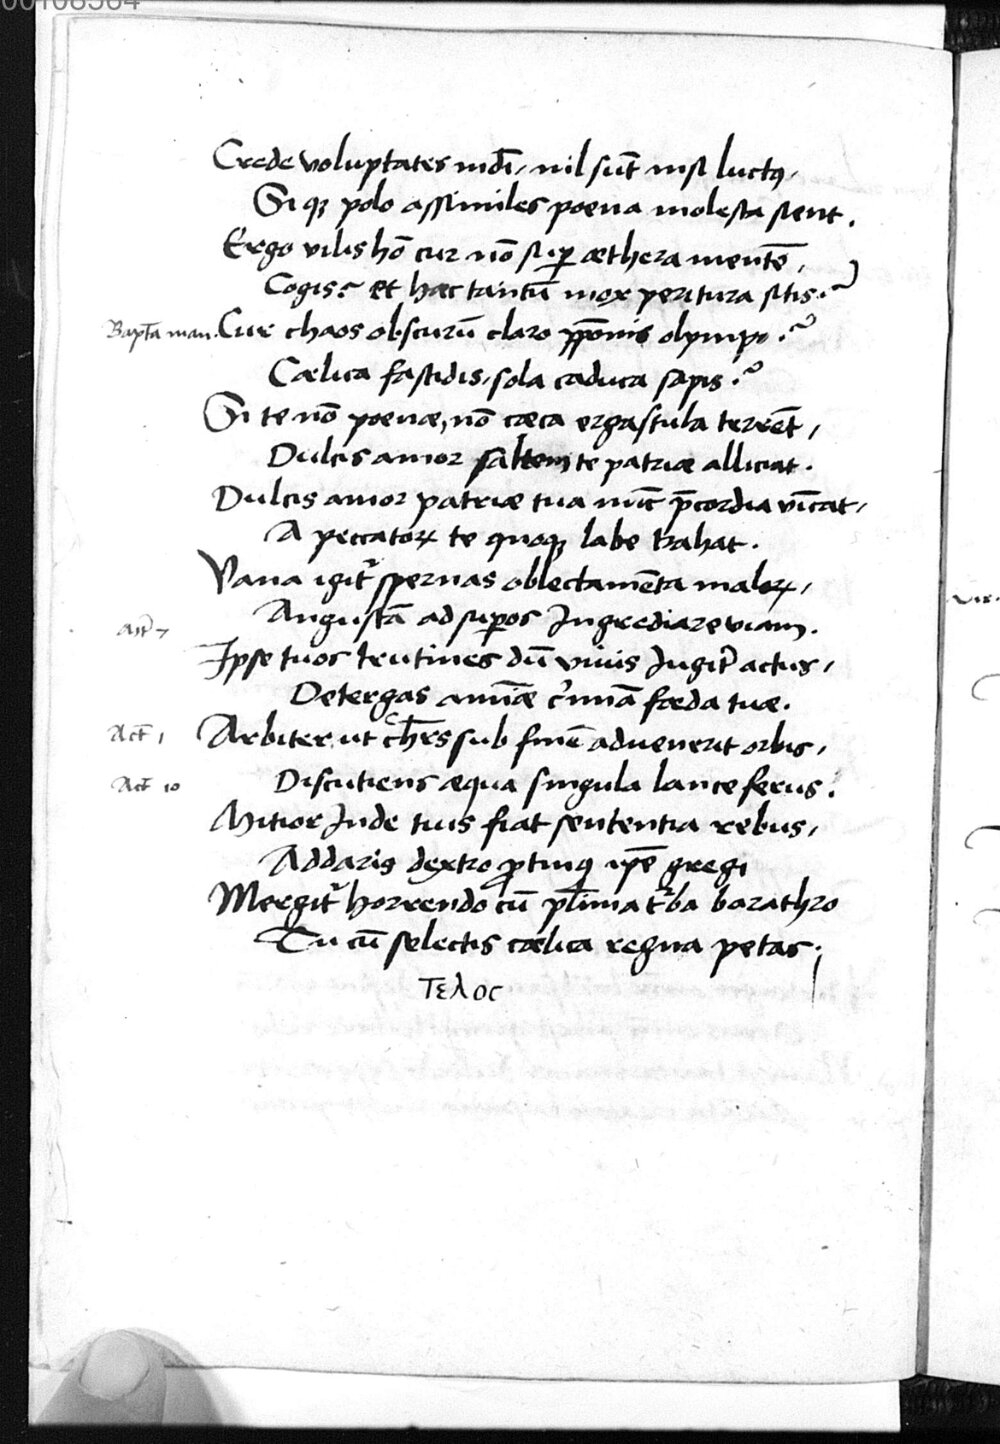 00108564
Crede voluptates mūdi, nil sūt nisi luctꝯ,
Si qꝫ polo assimiles poena molesta sient.
Ergo vilis hō cur nō sup̱ æthera mentē,
Cogis? et hæc tantū mox peritura sitis?
Bapta man. Cur chaos obscurū claro p̱pōnis olympo?
Cælica fastidis, sola caduca sapis?
Si te nō poenæ, nō cæca ergastula terrēt,
Dulcis amor saltem te patriæ alliciat.
Dulcis amor patriæ tua nūc p̄cordia vīcat,
A peccatoꝝ te quoqꝫ labe trahat.
Vana igit᷑ spernas oblectamēta maloꝝ,
Angustā ad sup̱os Ingrediare viam.
Ipse tuos trutines dū vivis Iugit᷑ actus,
Detergas animæ c᷑minā fæda tuæ.
Act 1 Arbiter ut chr̄s sub finē advenerit orbis,
Act 10 Discutiens æqua singula lance ferus:
Mitior Inde tuis fiat sententia rebus,
Addaris dextro ꝓtinꝯ ip̄e gregi
Mergit᷑ horrendo cū pl̄ima t᷑ba barathro
Tu cū selectis cælica regna petas.
Τελος